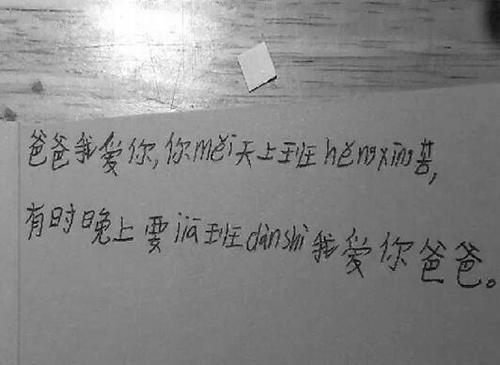 爸爸我爱你,你měi天上班hěngxīng苦,
有时晚上要jiā班dànshì我爱你爸爸。